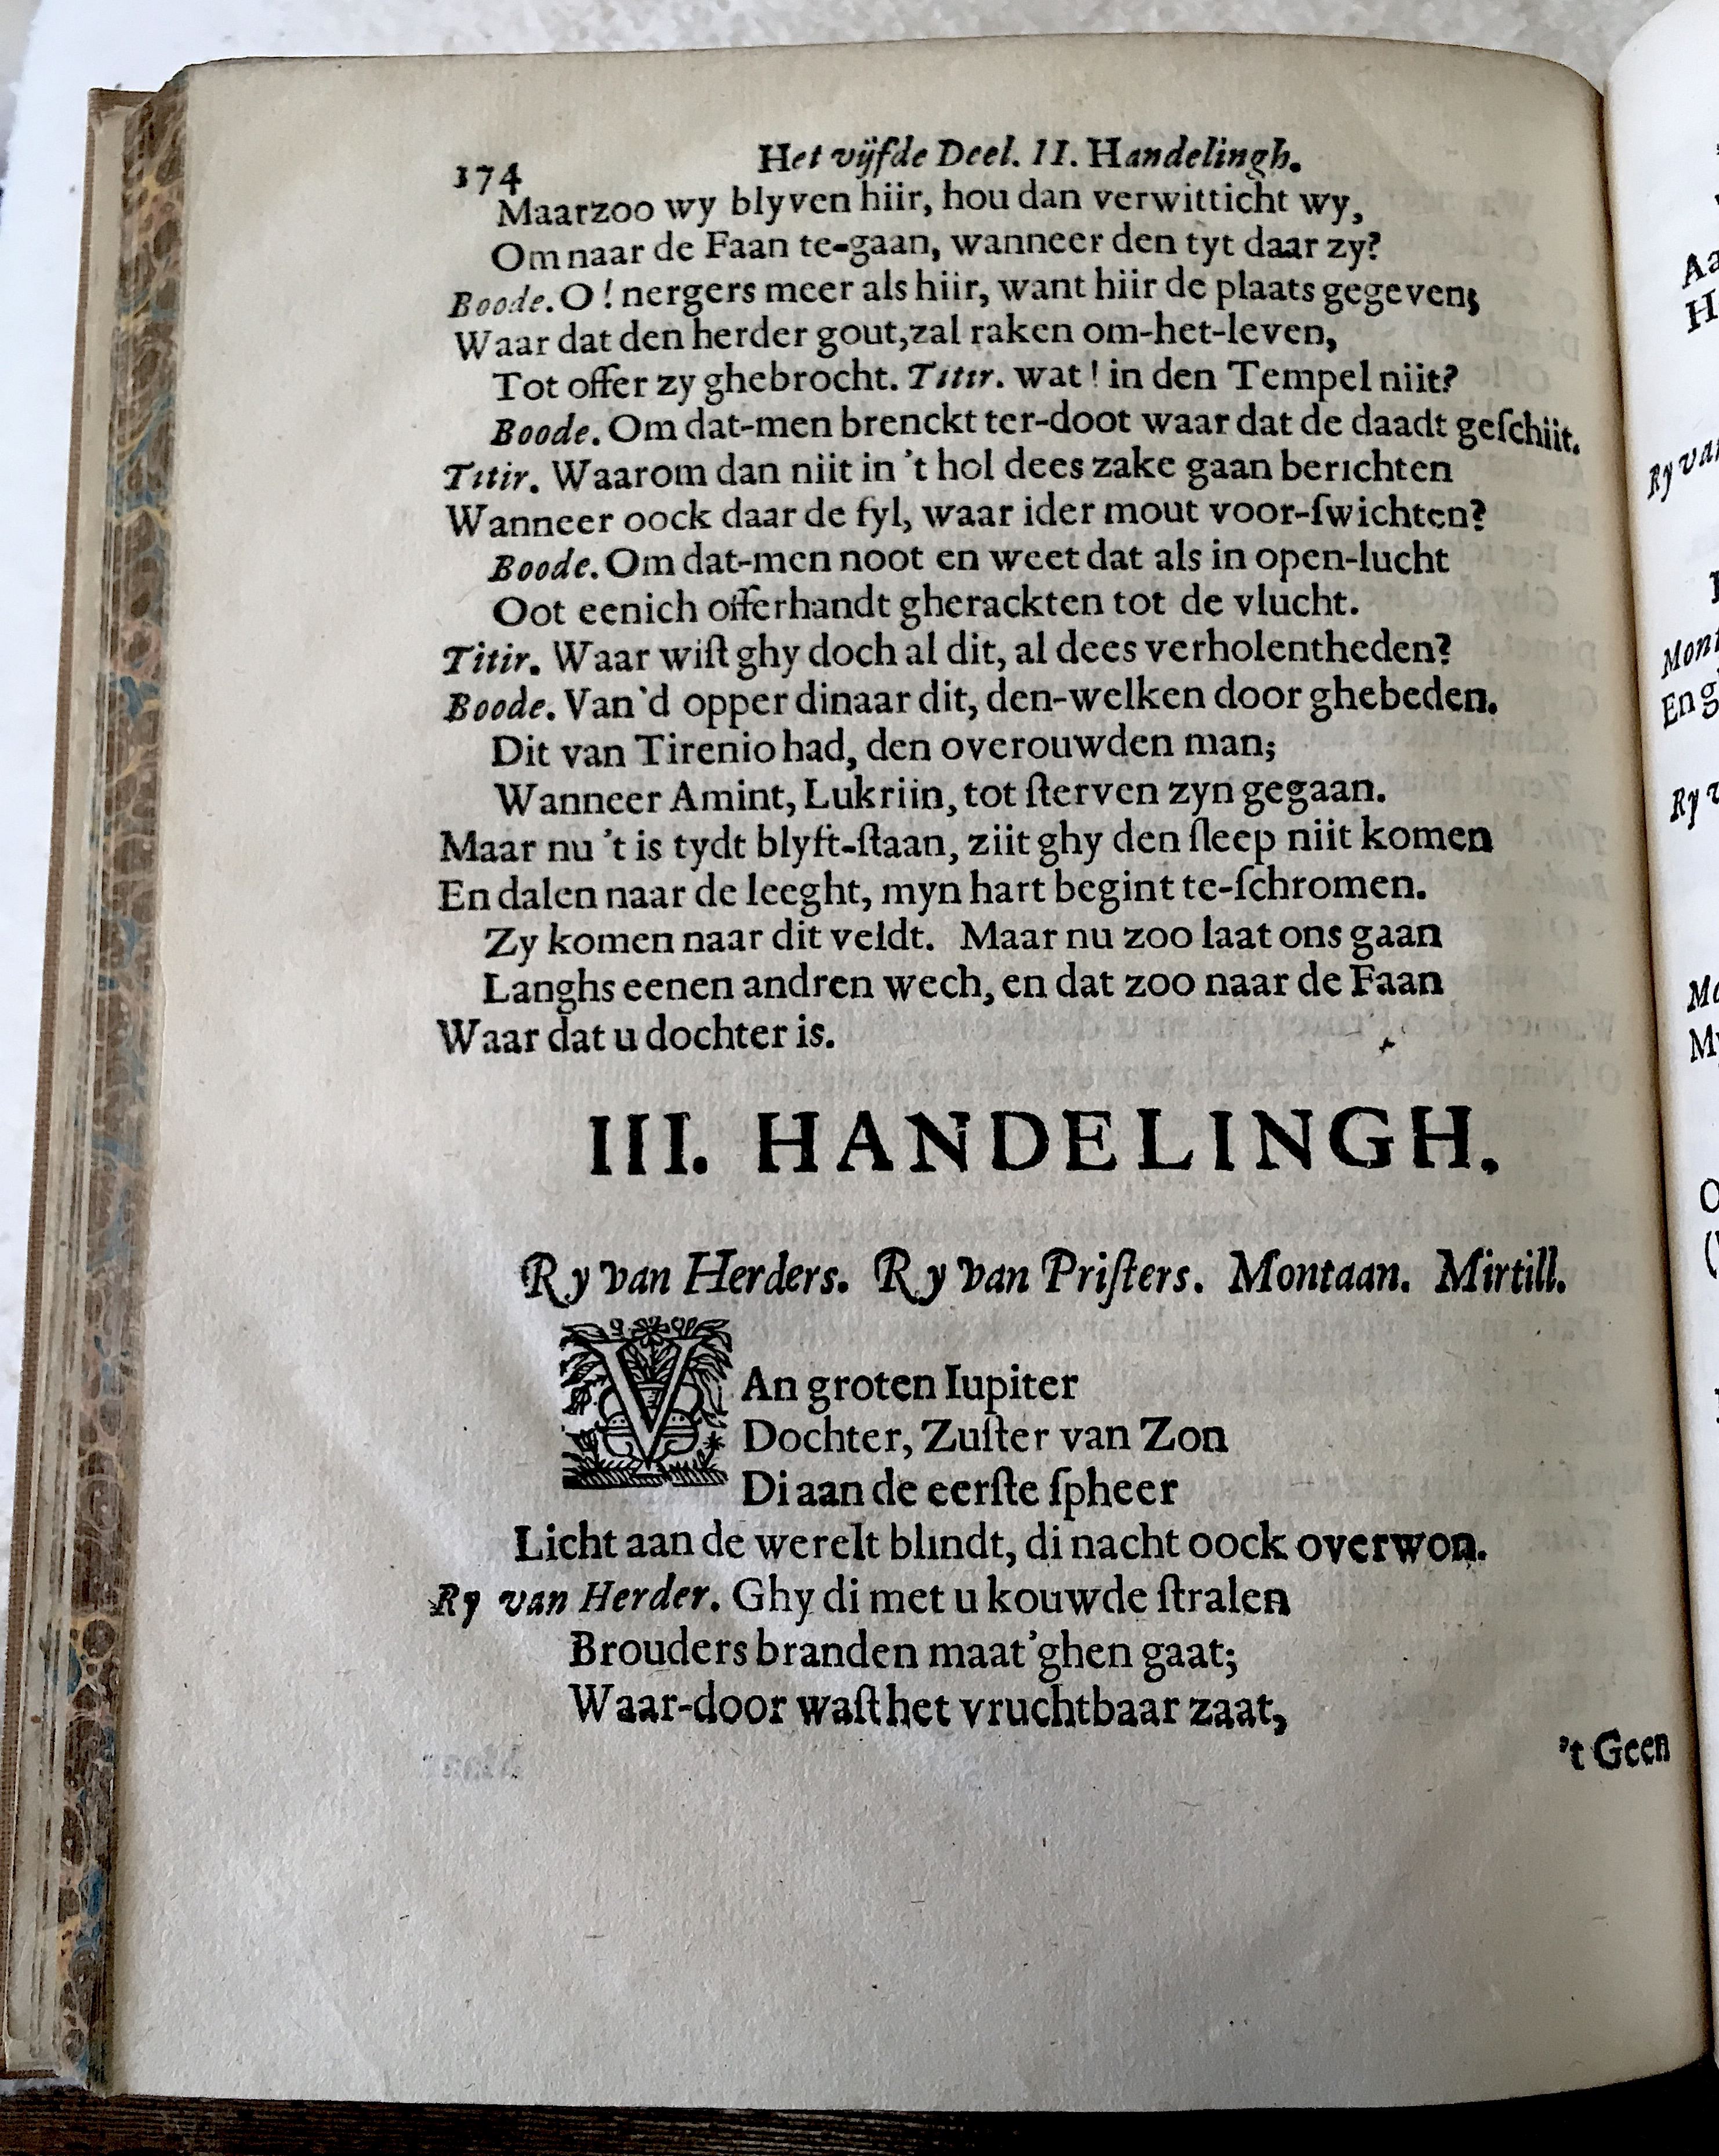 174 Het vijfde Deel. II. Handelingh.
Maarzoo wy blyven hiir, hou dan verwitticht wy,
Om naar de Faan te-gaan, wanneer den tyt daar zy?
Boode. O! nergers meer als hiir, want hiir de plaats gegeven;
Waar dat den herder gout, zal raken om-het-leven,
Tot offer zy ghebrocht. Titir. wat! in den Tempel niit?
Boode. Om dat-men brenckt ter-doot waar dat de daadt geſchiit.
Titir. Waarom dan niit in 't hol dees zake gaan berichten
Wanneer oock daar de fyl, waar ider mout voor-ſwichten?
Boode. Om dat-men noot en weet dat als in open-lucht
Oot eenich offerhandt gherackten tot de vlucht.
Titir. Waar wiſt ghy doch al dit, al dees verholentheden?
Boode. Van'd opper dinaar dit, den-welken door ghebeden.
Dit van Tirenio had, den overouwden man;
Wanneer Amint, Lukriin, tot ſterven zyn gegaan.
Maar nu 't is tydt blyft-ſtaan, ziit ghy den ſleep niit komen
En dalen naar de leeght, myn hart begint te-ſchromen.
Zy komen naar dit veldt. Maar nu zoo laat ons gaan
Langhs eenen andren wech, en dat zoo naar de Faan
Waar dat u dochter is.
III. HANDELINGH.
Ry van Herders. Ry van Priſters. Montaan. Mirtill.
VAn groten Iupiter
Dochter, Zuſter van Zon
Di aan de eerſte ſpheer
Licht aan de werelt blindt, di nacht oock overwon.
Ry van Herder. Ghy di met u kouwde ſtralen
Brouders branden maat'ghen gaat;
Waar-door waſt het vruchtbaar zaat,
't Geen